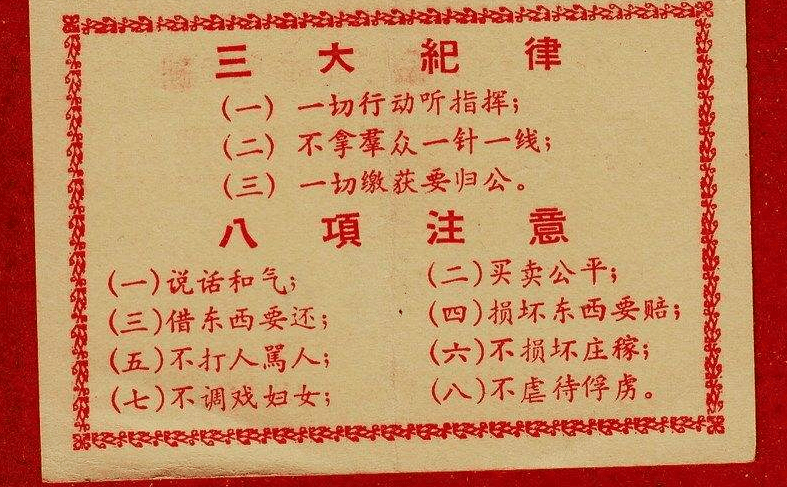 三大紀律
(一) 一切行动听指挥；
(二) 不拿羣众一针一线；
(三) 一切缴获要归公。
八項注意
(一)说话和气；
(二)买卖公平；
(三)借东西要还；
(四)损坏东西要赔；
(五)不打人駡人；
(六)不损坏庄稼；
(七)不调戏妇女；
(八)不虐待俘虏。